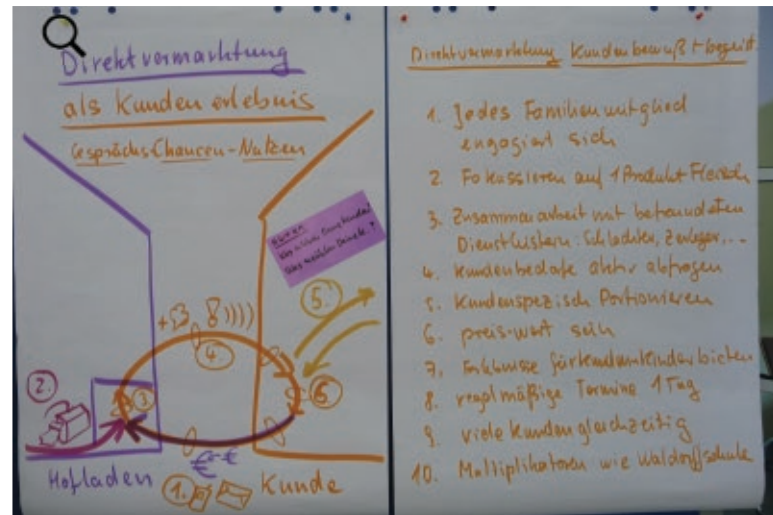 Direktvermarktung
als Kundenerlebnis
Gesprächs-Chancen-Nutzen
5.
4
2.
3
6
€-€
Hofladen
1.
Kunde
Direktvermarktung Kundenbewußt+begeist
1. Jedes Familienmitglied
engagiert sich
2. Fokussieren auf 1 Produkt Fleisch
3. Zusammenarbeit mit befreundeten
Dienstleistern: Schlachter, Zerleger,...
4. Kundenbedarfe aktiv abfragen
5. Kundenspezisch Portionieren
6. preis-wert sein
7. Erlebnisse für bieten
8. regelmäßige Termine 1 Tag
9. viele Kunden gleichzeitig
10. Multiplikatoren wie Waldorfschule